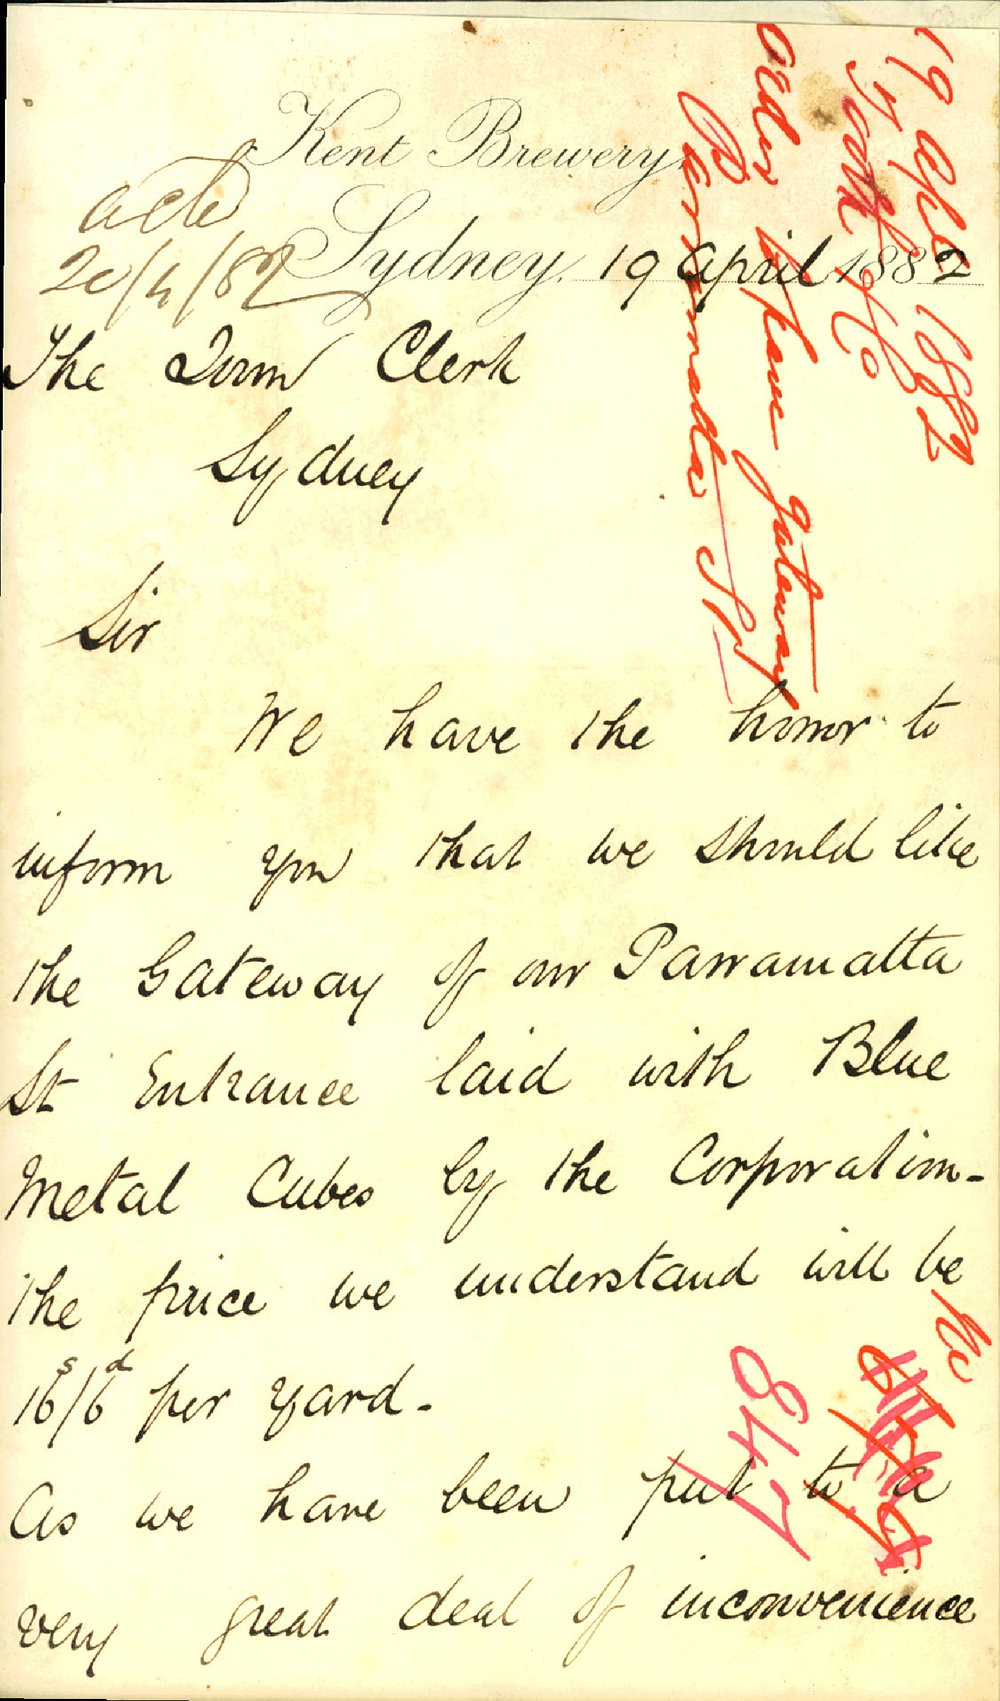 Kent Brewery,
Sydney. 19 April 1882
ack
20/4/82
The Town Clerk
Sydney
Sir
We have the honor to
inform you that we should like
the Gateway of our Parramatta
St Entrance laid with Blue
Metal Cubes by the Corporation -
The price we understand will be
16s/6d per yard -
As we have been put to a
very great deal of inconvenience
19 April 1882
Tooth & Co
order to pave gateway
Parramatta St
No
847